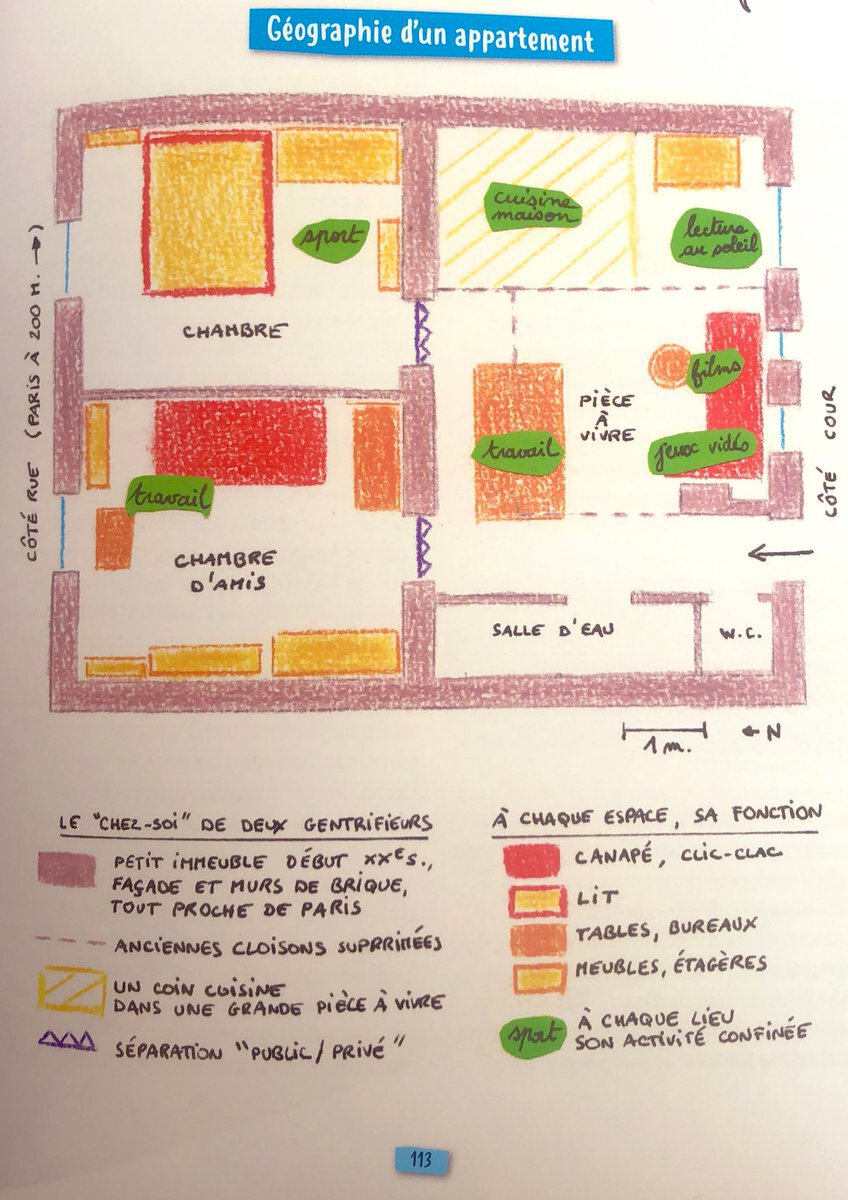 Géographie d'un appartement
cuisine
maison
lecture
au soleil
sport
CHAMBRE
films
PIÈCE
À
VIVRE
travail
jeux vidéo
travail
CHAMBRE
D'AMIS
SALLE D'EAU
W.C.
CÔTÉ RUE (PARIS À 200 M. →)
CÔTÉ COUR
1 m.
← N
LE "CHEZ-SOI" DE DEUX GENTRIFIEURS
PETIT IMMEUBLE DÉBUT XXE S.,
FAÇADE ET MURS DE BRIQUE,
TOUT PROCHE DE PARIS
ANCIENNES CLOISONS SUPPRIMÉES
UN COIN CUISINE
DANS UNE GRANDE PIÈCE À VIVRE
SÉPARATION "PUBLIC/PRIVÉ"
À CHAQUE ESPACE, SA FONCTION
CANAPÉ, CLIC-CLAC
LIT
TABLES, BUREAUX
MEUBLES, ÉTAGÈRES
sport
À CHAQUE LIEU
SON ACTIVITÉ CONFINÉE
113